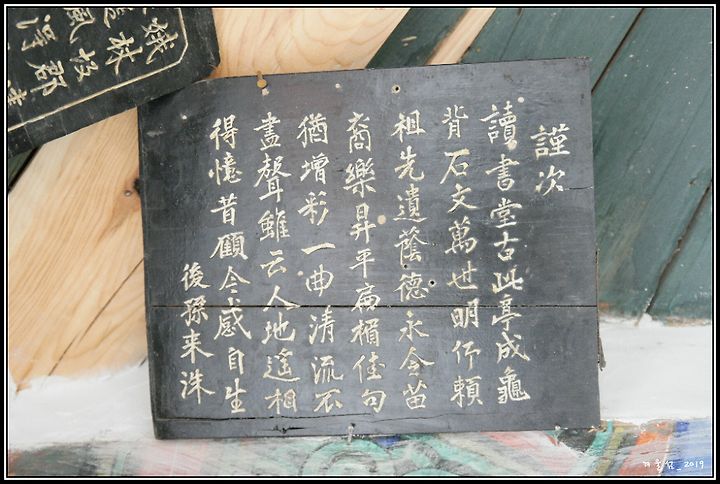 謹次
讀書堂古此亭成龜
背石文萬世明仰賴
祖先遺蔭德永令苗
裔樂昇平扁楣佳句
猶增彩一曲清流不
盡聲雖云人地遙相
得憶昔顧今感自生
後孫来洙
2019